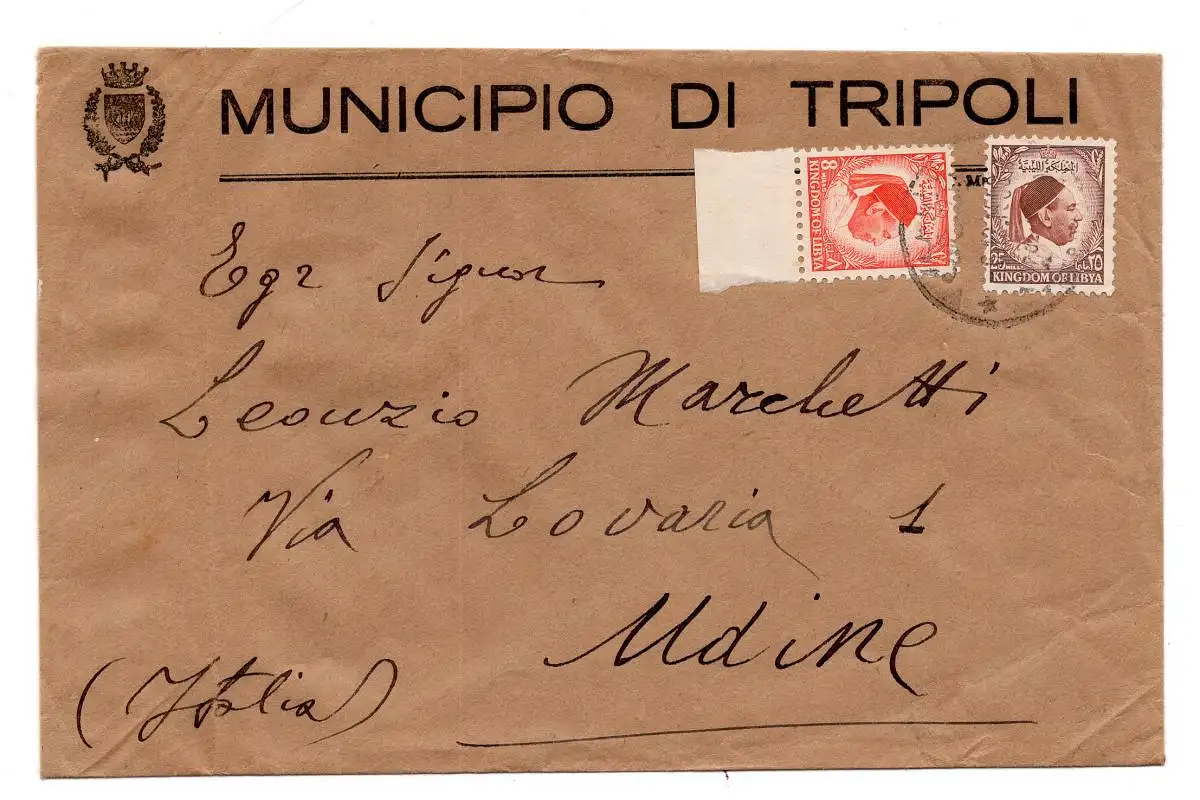 MUNICIPIO DI TRIPOLI
8 MILLS ٨
KINGDOM OF LIBYA
المملكة الليبية
25 MILLS ٢٥
KINGDOM OF LIBYA
Egr Signor
Leonzio Marchetti
Via Lovaria 1
Udine
(Italia)